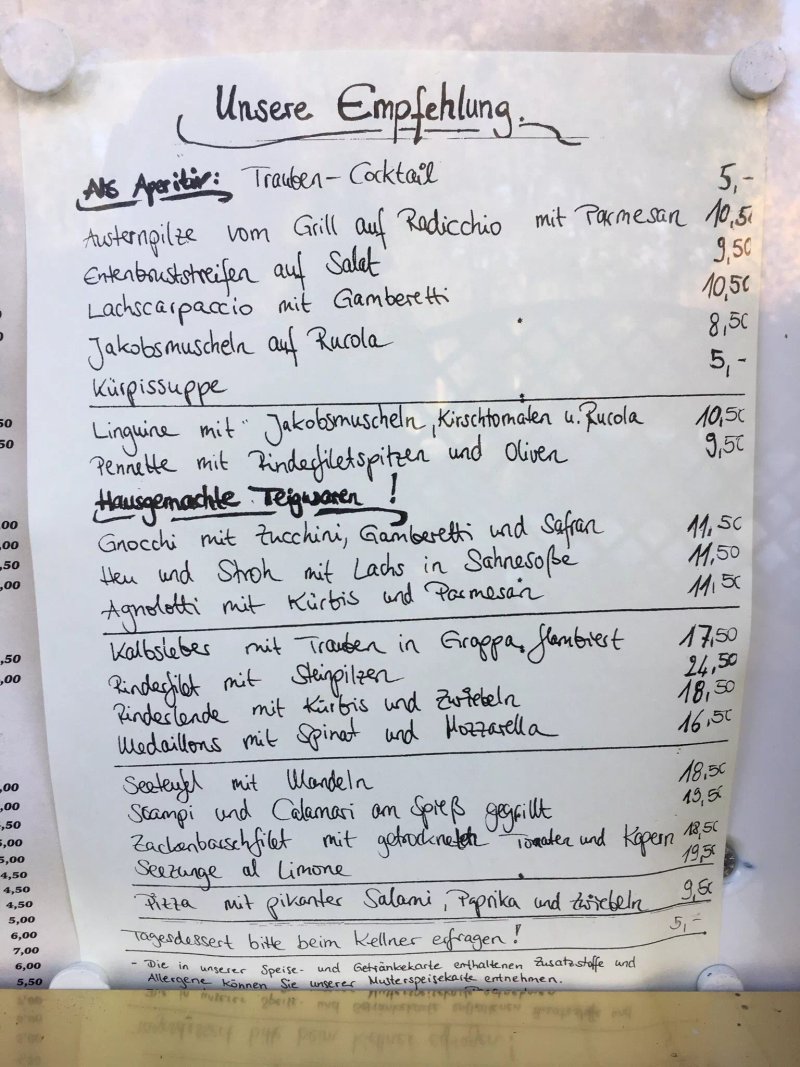 Unsere Empfehlung.
Als Aperitiv: Trauben-Cocktail 5,-
Austernpilze vom Grill auf Radicchio mit Parmesan 10,50
Entenbruststreifen auf Salat 9,50
Lachscarpaccio mit Gamberetti 10,50
Jakobsmuscheln auf Rucola 8,50
Kürpissuppe 5,-
Linguine mit Jakobsmuscheln, Kirschtomaten u. Rucola 10,50
Pennette mit Rinderfiletspitzen und Oliven 9,50
Hausgemachte Teigwaren!
Gnocchi mit Zucchini, Gamberetti und Safran 11,50
Heu und Stroh mit Lachs in Sahnesoße 11,50
Agnolotti mit Kürbis und Parmesan 11,50
Kalbsleber mit Trauben in Grappa flambiert 17,50
Rinderfilet mit Steinpilzen 24,50
Rinderlende mit Kürbis und Zwiebeln 18,50
Medaillons mit Spinat und Mozzarella 16,50
Seeteufel mit Mandeln 18,50
Scampi und Calamari am Spieß gegrillt 19,50
Zackenbarschfilet mit getrockneten Tomaten und Kapern 18,50
Seezunge al Limone 19,50
Pizza mit pikanter Salami, Paprika und Zwiebeln 9,50
Tagesdessert bitte beim Kellner erfragen! 5,-
- Die in unserer Speise- und Getränkekarte enthaltenen Zusatzstoffe und
Allergene können Sie unserer Musterspeisekarte entnehmen.
4,50
4,50
5,00
6,00
7,00
6,00
5,50